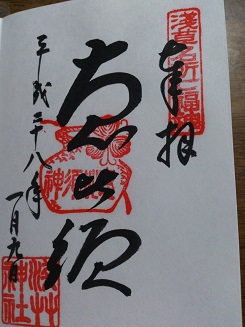 奉拝
淺草名所七福神
恵比須
平成二十八年
一月九日
浅草神社